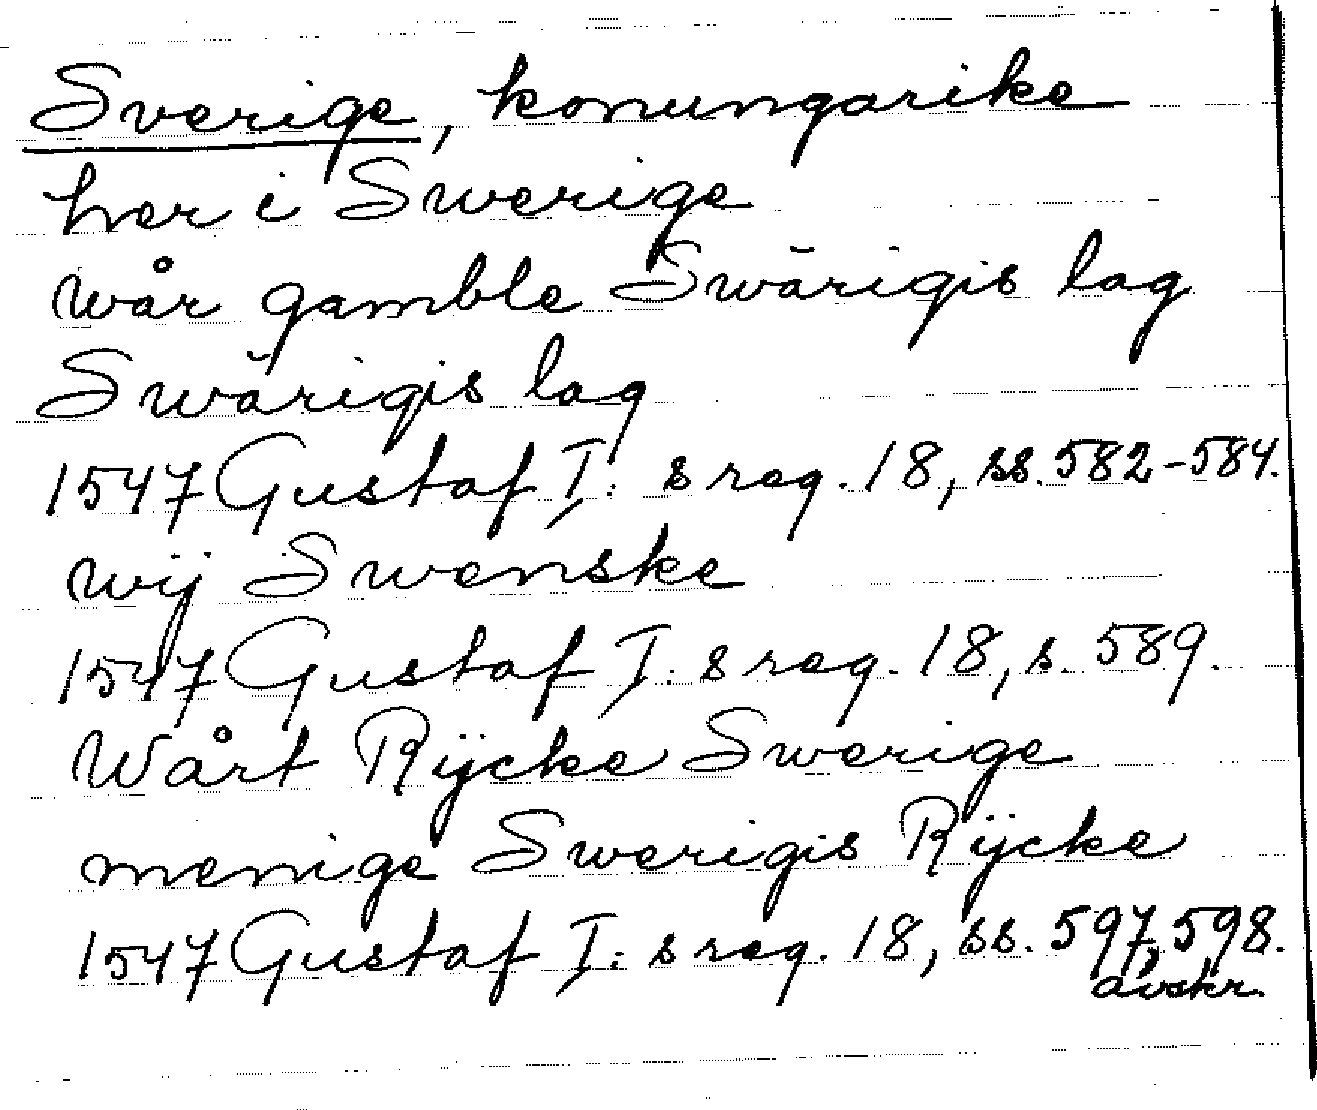 Sverige, konungarike
her i Swerige
wår gamble Swärigis lag
Swärigis lag
1547 Gustaf I:s reg. 18, ss. 582-584.
wij Swenske
1547 Gustaf I:s reg. 18, s. 589.
Wårt Rÿcke Swerige
menige Swerigis Rÿcke
1547 Gustaf I:s reg. 18, ss. 597, 598.
avskr.